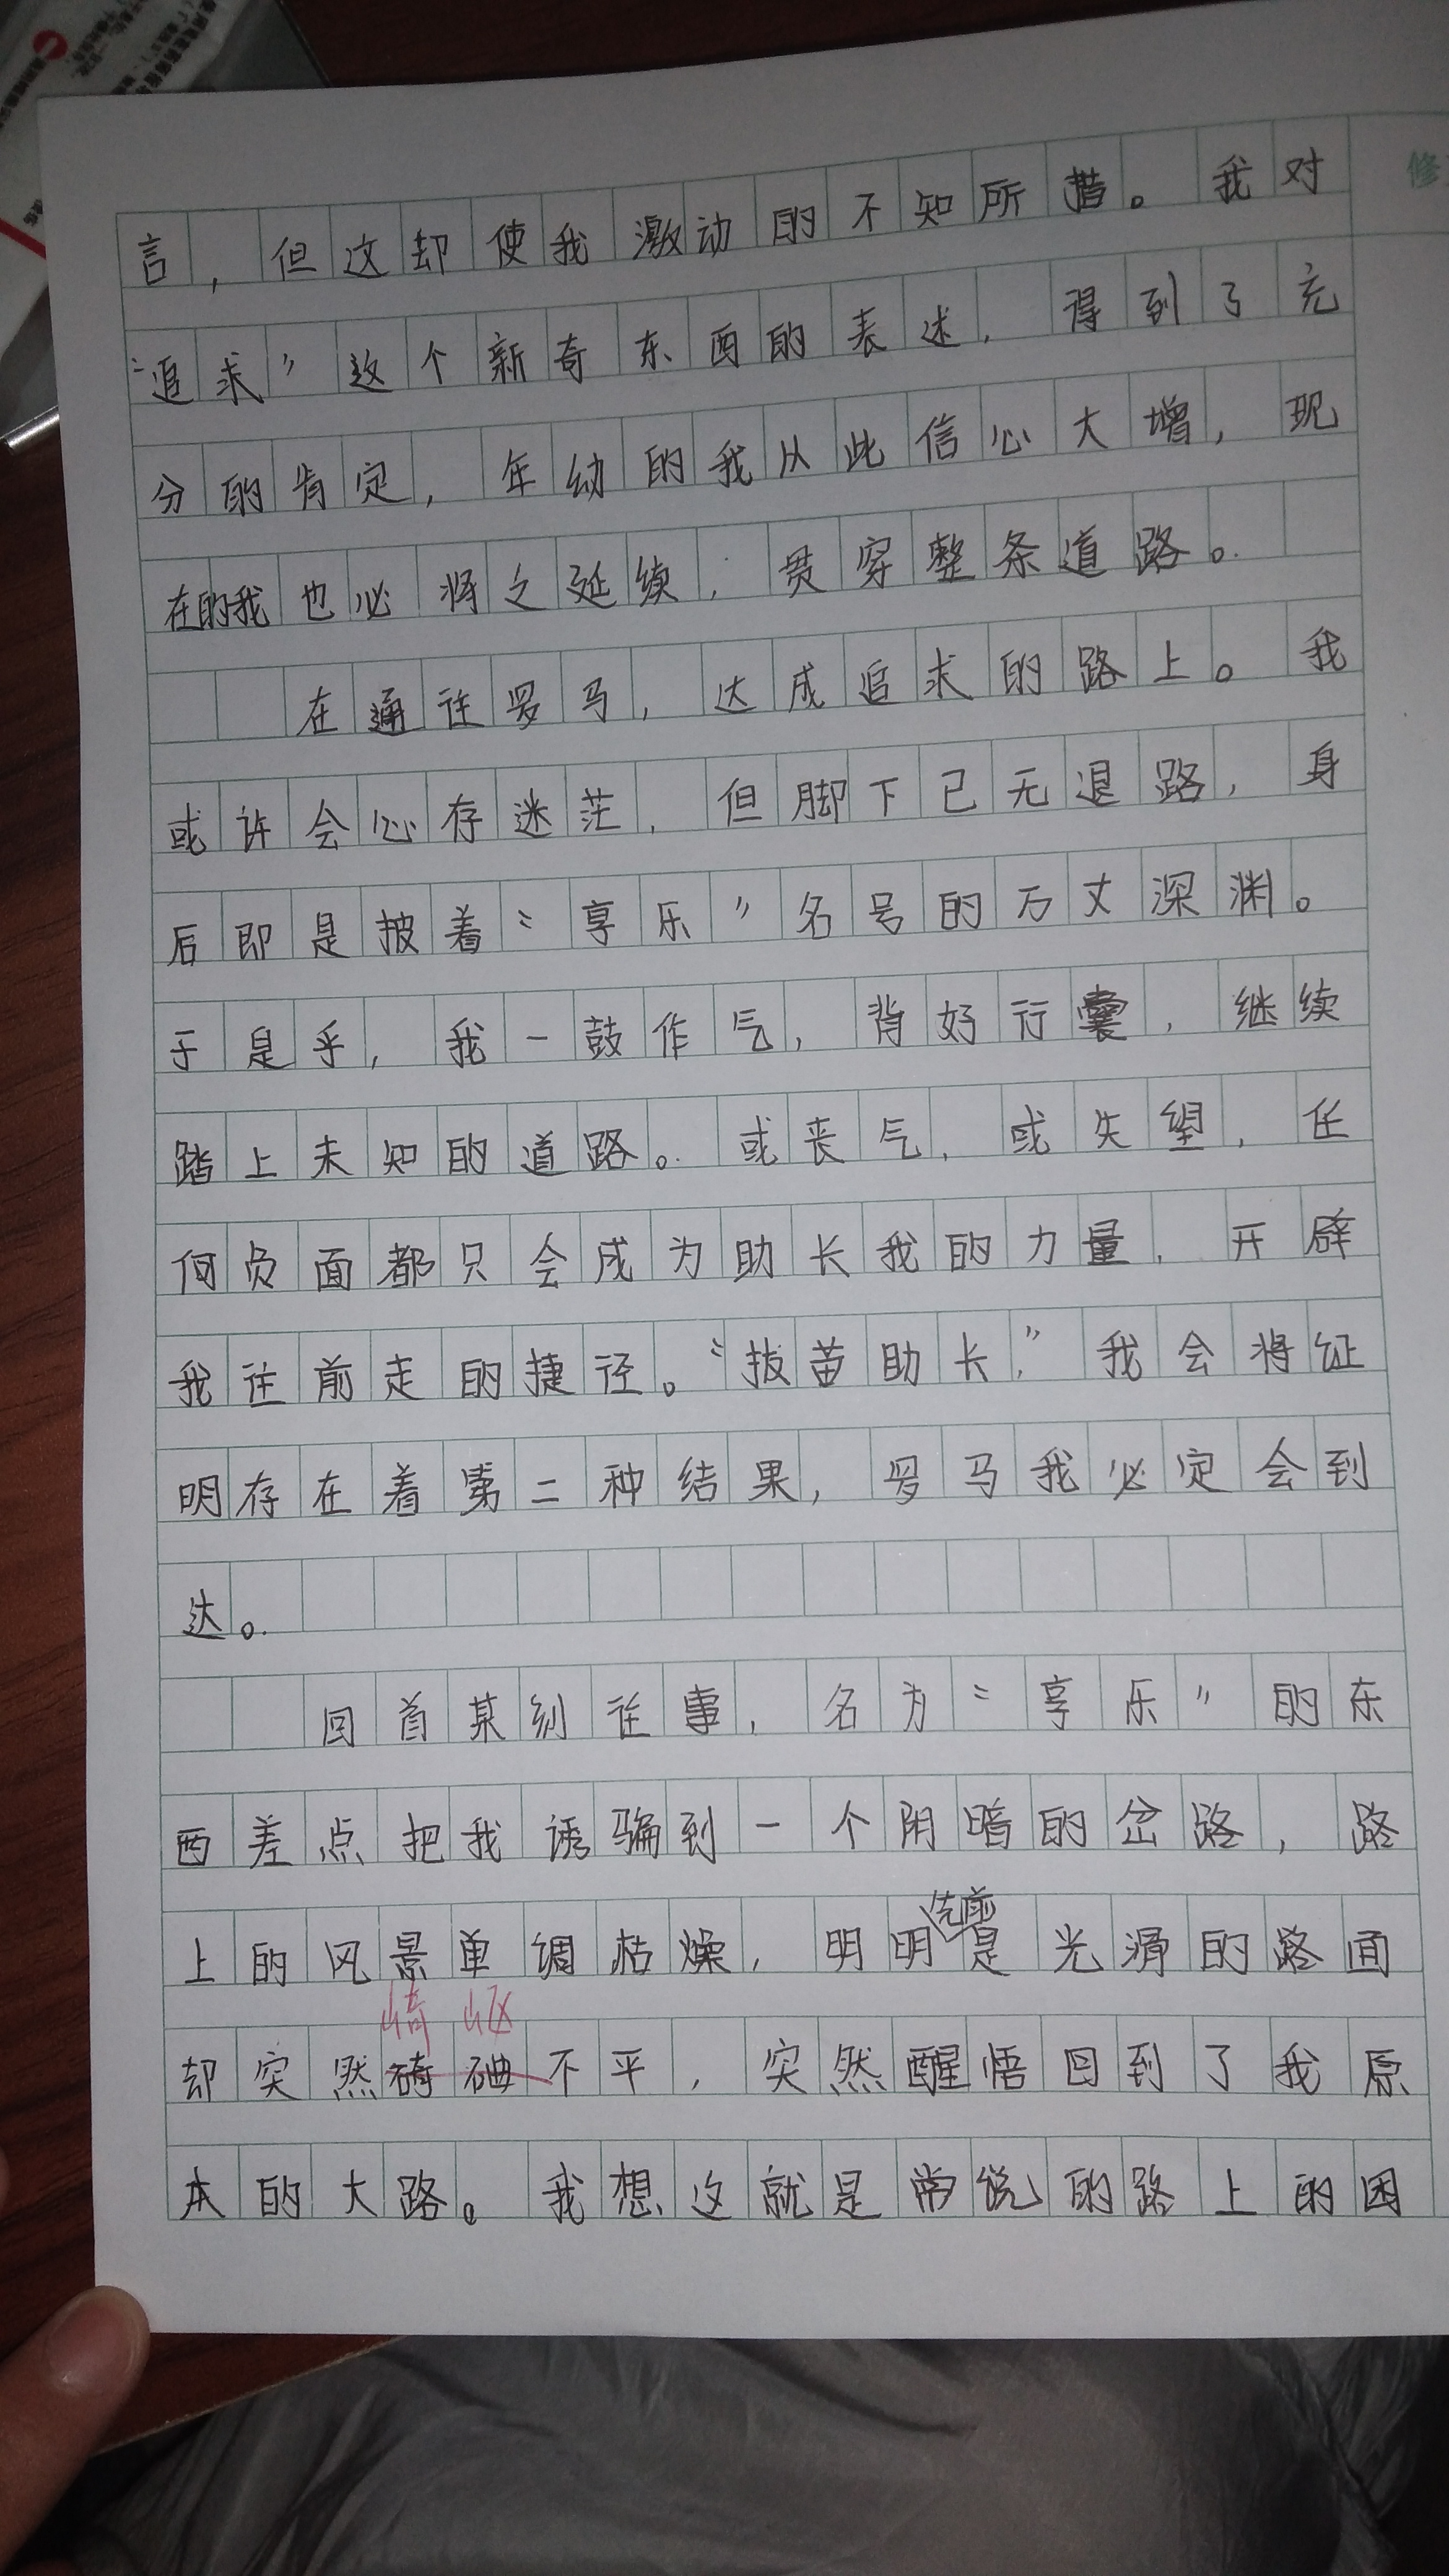 修
言，但这却使我激动的不知所措。我对
“追求”这个新奇东西的表述，得到了充
分的肯定，年幼的我从此信心大增，现
在的我也必将之延续，贯穿整条道路。
在通往罗马，达成追求的路上。我
或许会心存迷茫，但脚下已无退路，身
后即是披着“享乐”名号的万丈深渊。
于是乎，我一鼓作气，背好行囊，继续
踏上未知的道路。或丧气，或失望，任
何负面都只会成为助长我的力量，开辟
我往前走的捷径。“拔苗助长，”我会将证
明存在着第二种结果，罗马我必定会到
达。
回首某刻往事，名为“享乐”的东
西差点把我诱骗到一个阴暗的岔路，路
上的风景单调枯燥，明明先前是光滑的路面
崎岖
却突然不平，突然醒悟回到了我原
本的大路。我想这就是常说的路上的困